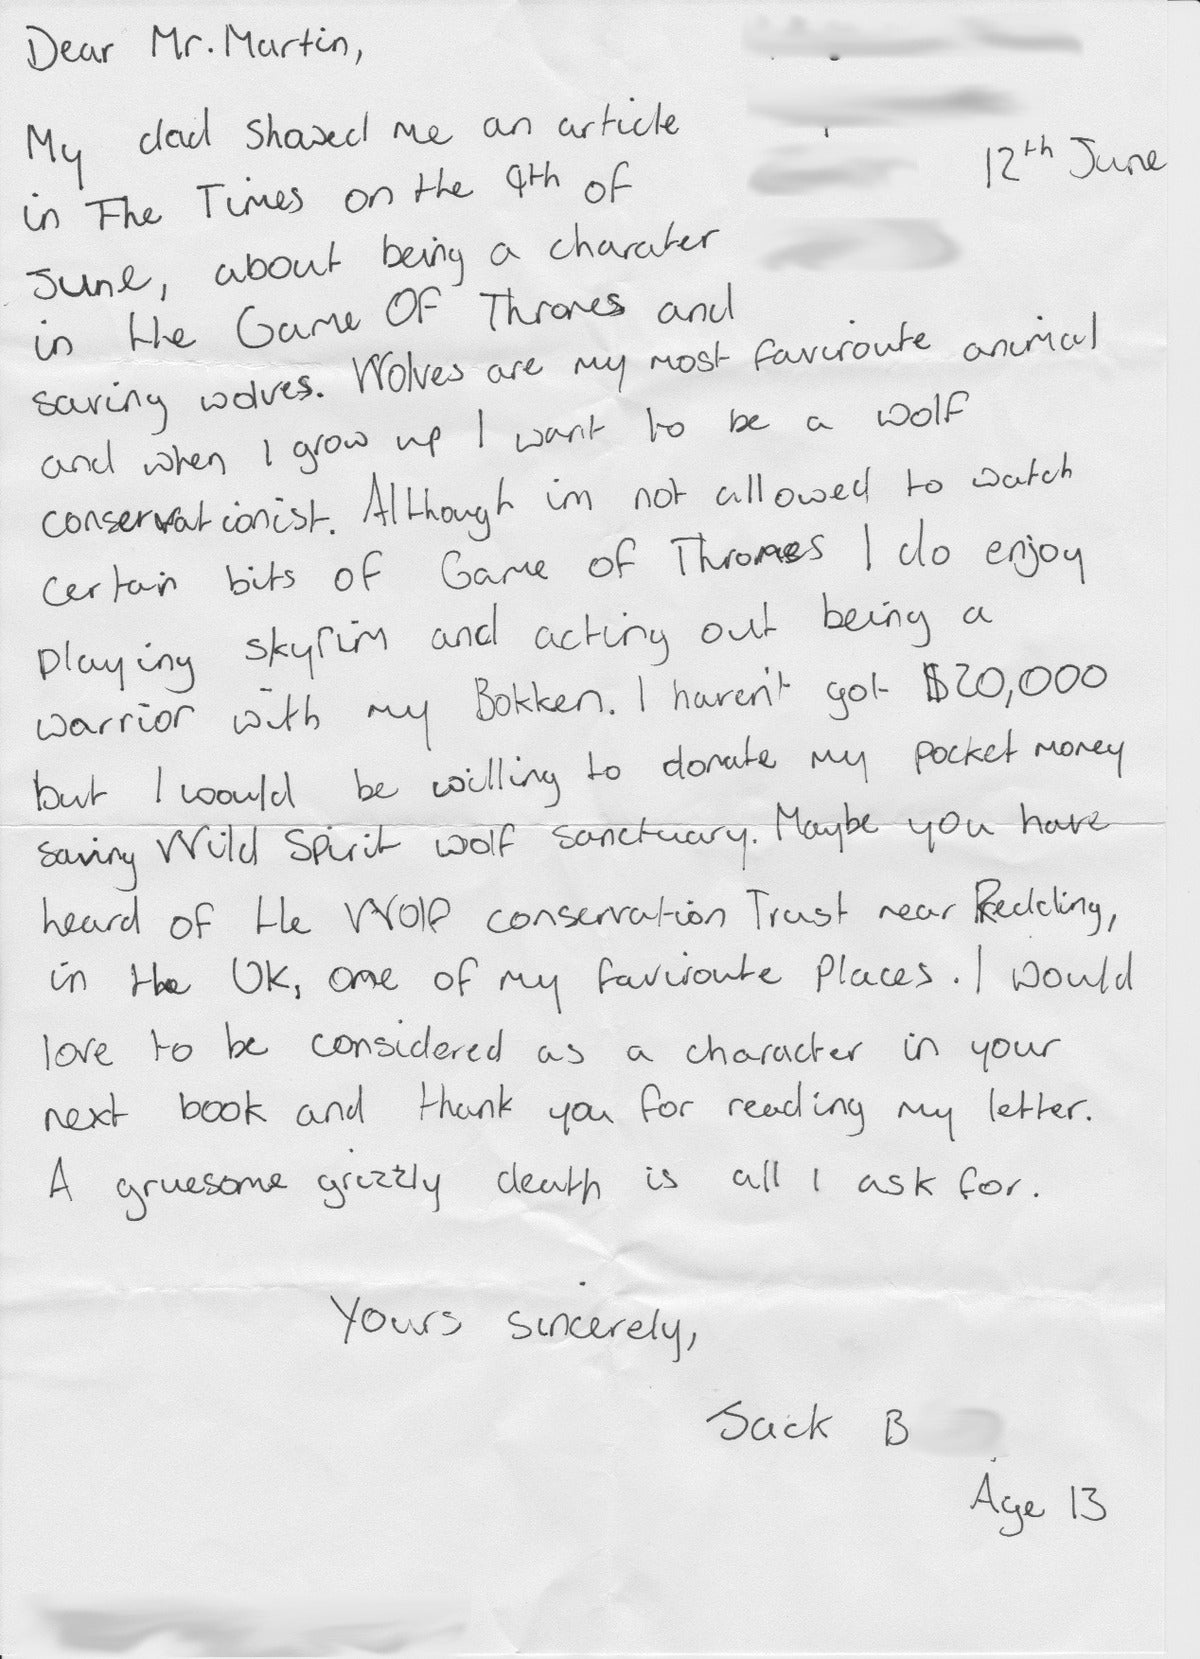 Dear Mr. Martin,
12th June
My dad Showed me an article
in The Times on the 9th of
June, about being a charater
in the Game Of Thrones and
saving wolves. Wolves are my most faviroute animal
and when I grow up I want to be a wolf
conservationist. Although im not allowed to watch
certain bits of Game of Thrones I do enjoy
playing skyrim and acting out being a
warrior with my Bokken. I haven't got $20,000
but I would be willing to donate my pocket money
saving Wild Spirit wolf sanctuary. Maybe you have
heard of the Wolf conservation Trust near Redding,
in the UK, one of my faviroute Places. I would
love to be considered as a character in your
next book and thank you for reading my letter.
A gruesome grizzly death is all I ask for.
Yours sincerely,
Jack B
Age 13